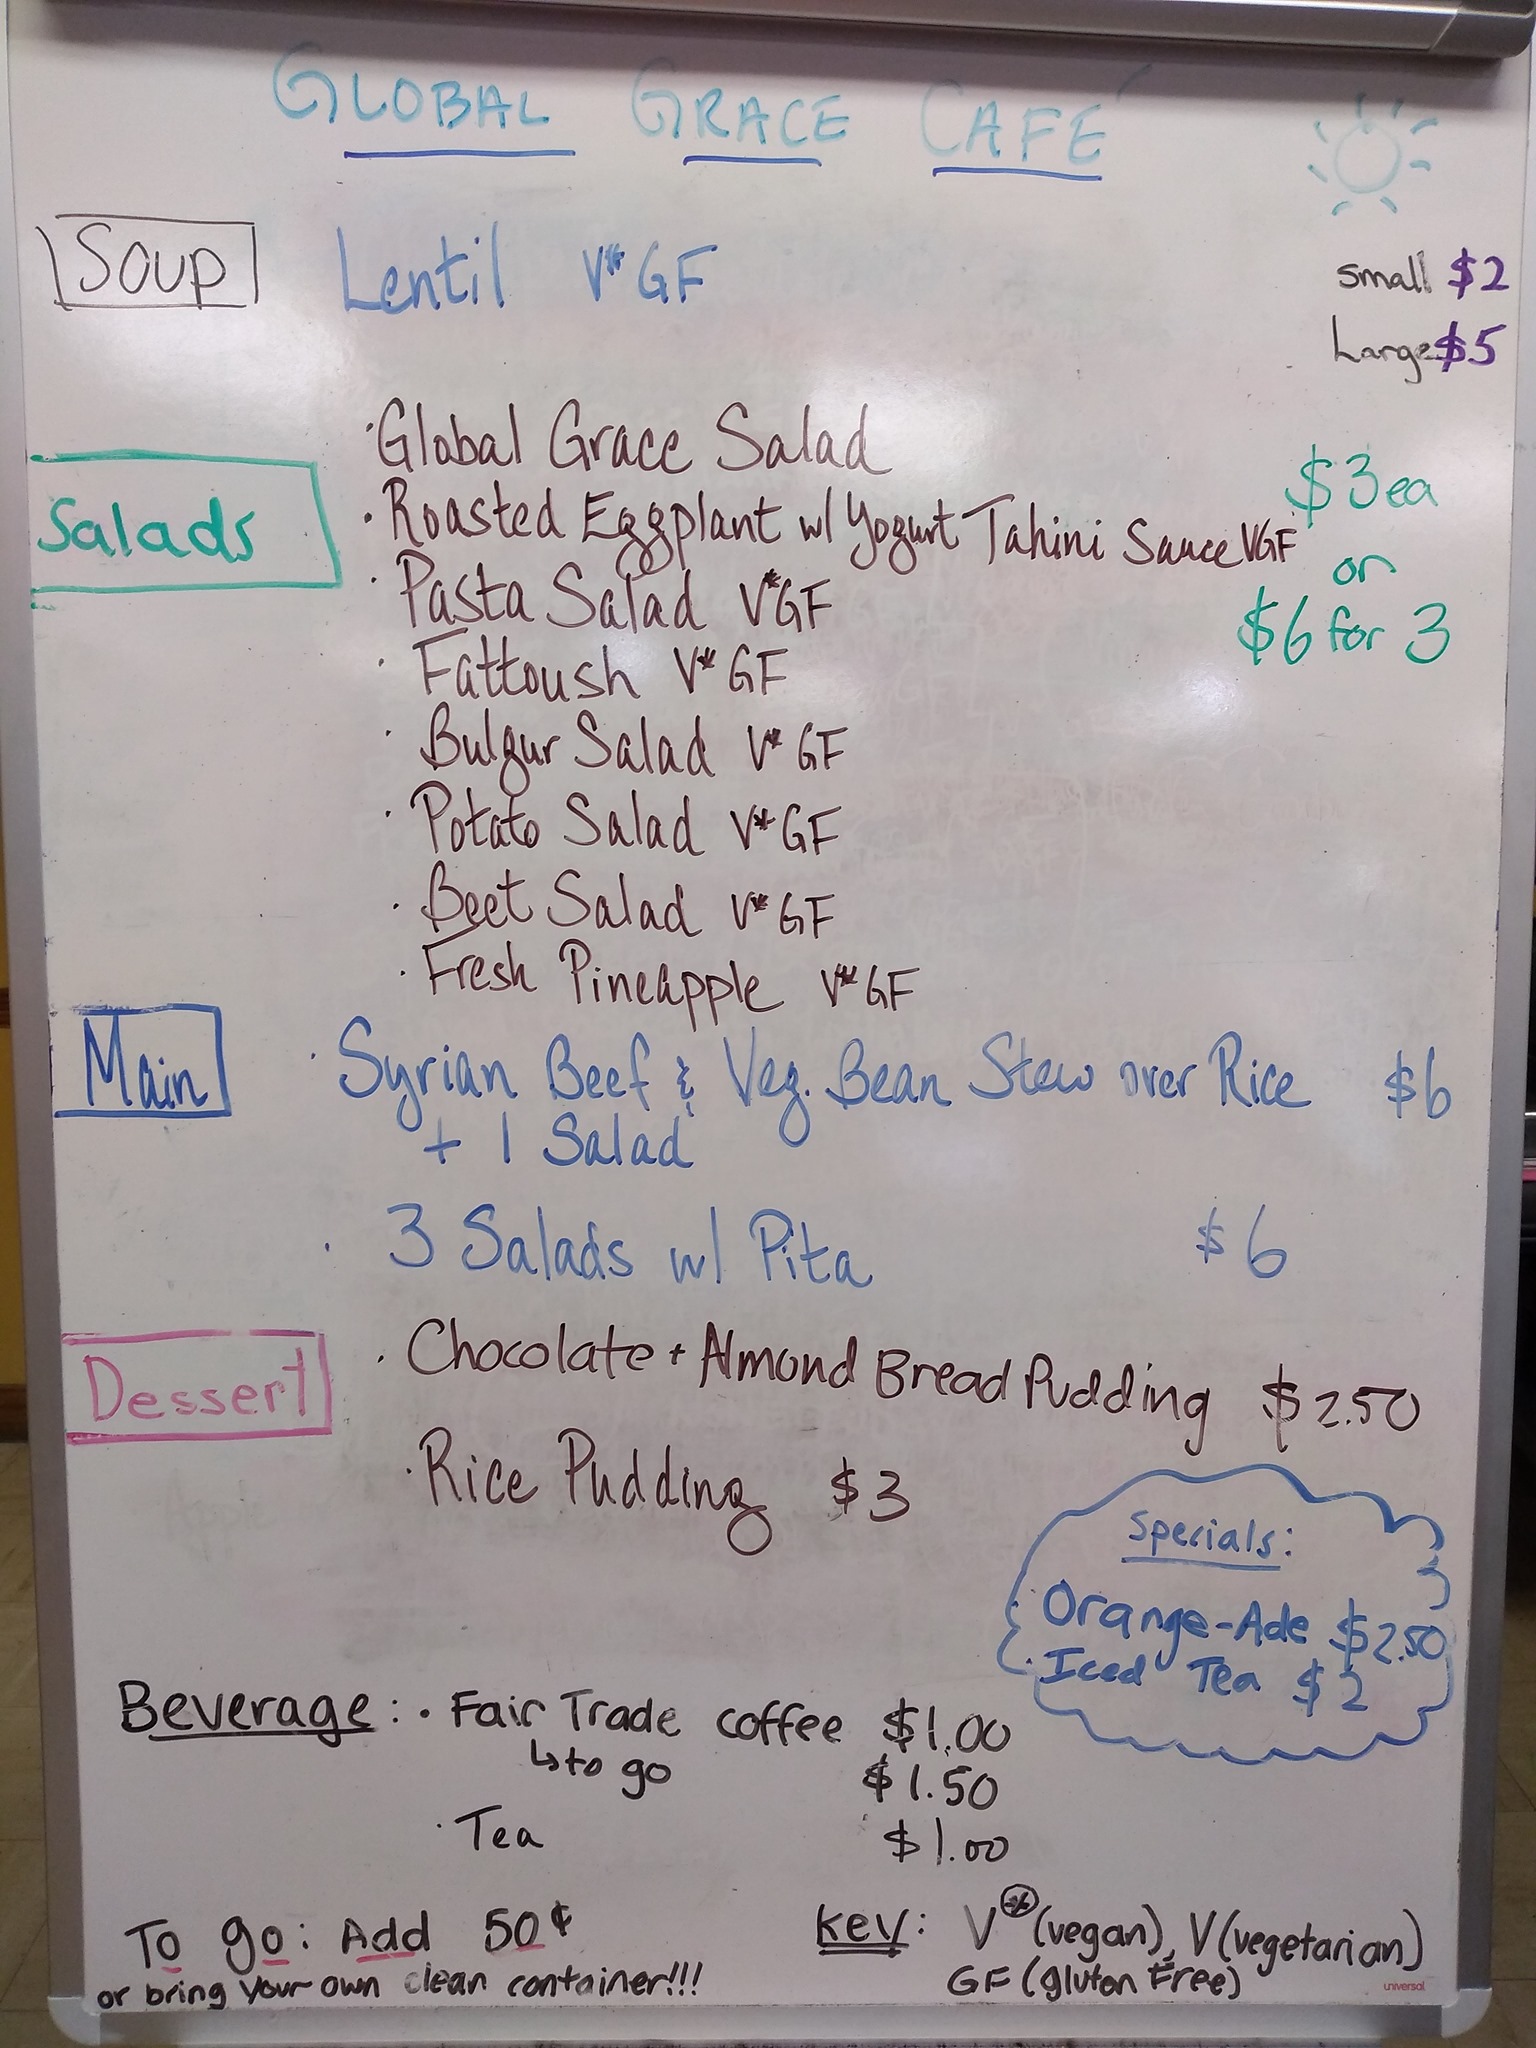 GLOBAL GRACE CAFÉ
Soup
Lentil V* GF
Small $2
Large $5
Salads
· Global Grace Salad
· Roasted Eggplant w/ Yogurt Tahini Sauce VGF
· Pasta Salad V*GF
· Fattoush V* GF
· Bulgur Salad V* GF
· Potato Salad V* GF
· Beet Salad V* GF
· Fresh Pineapple V* GF
$3 ea
or
$6 for 3
Main
· Syrian Beef & Veg. Bean Stew over Rice $6
+ 1 Salad
· 3 Salads w/ Pita $6
Dessert
· Chocolate + Almond Bread Pudding $2.50
· Rice Pudding $3
Specials:
· Orange-Ade $2.50
· Iced Tea $2
Beverage: · Fair Trade coffee $1.00
↳ to go $1.50
· Tea $1.00
To go: Add 50¢
or bring your own clean container!!!
Key: V* (vegan), V (vegetarian)
GF (gluton Free)
universal